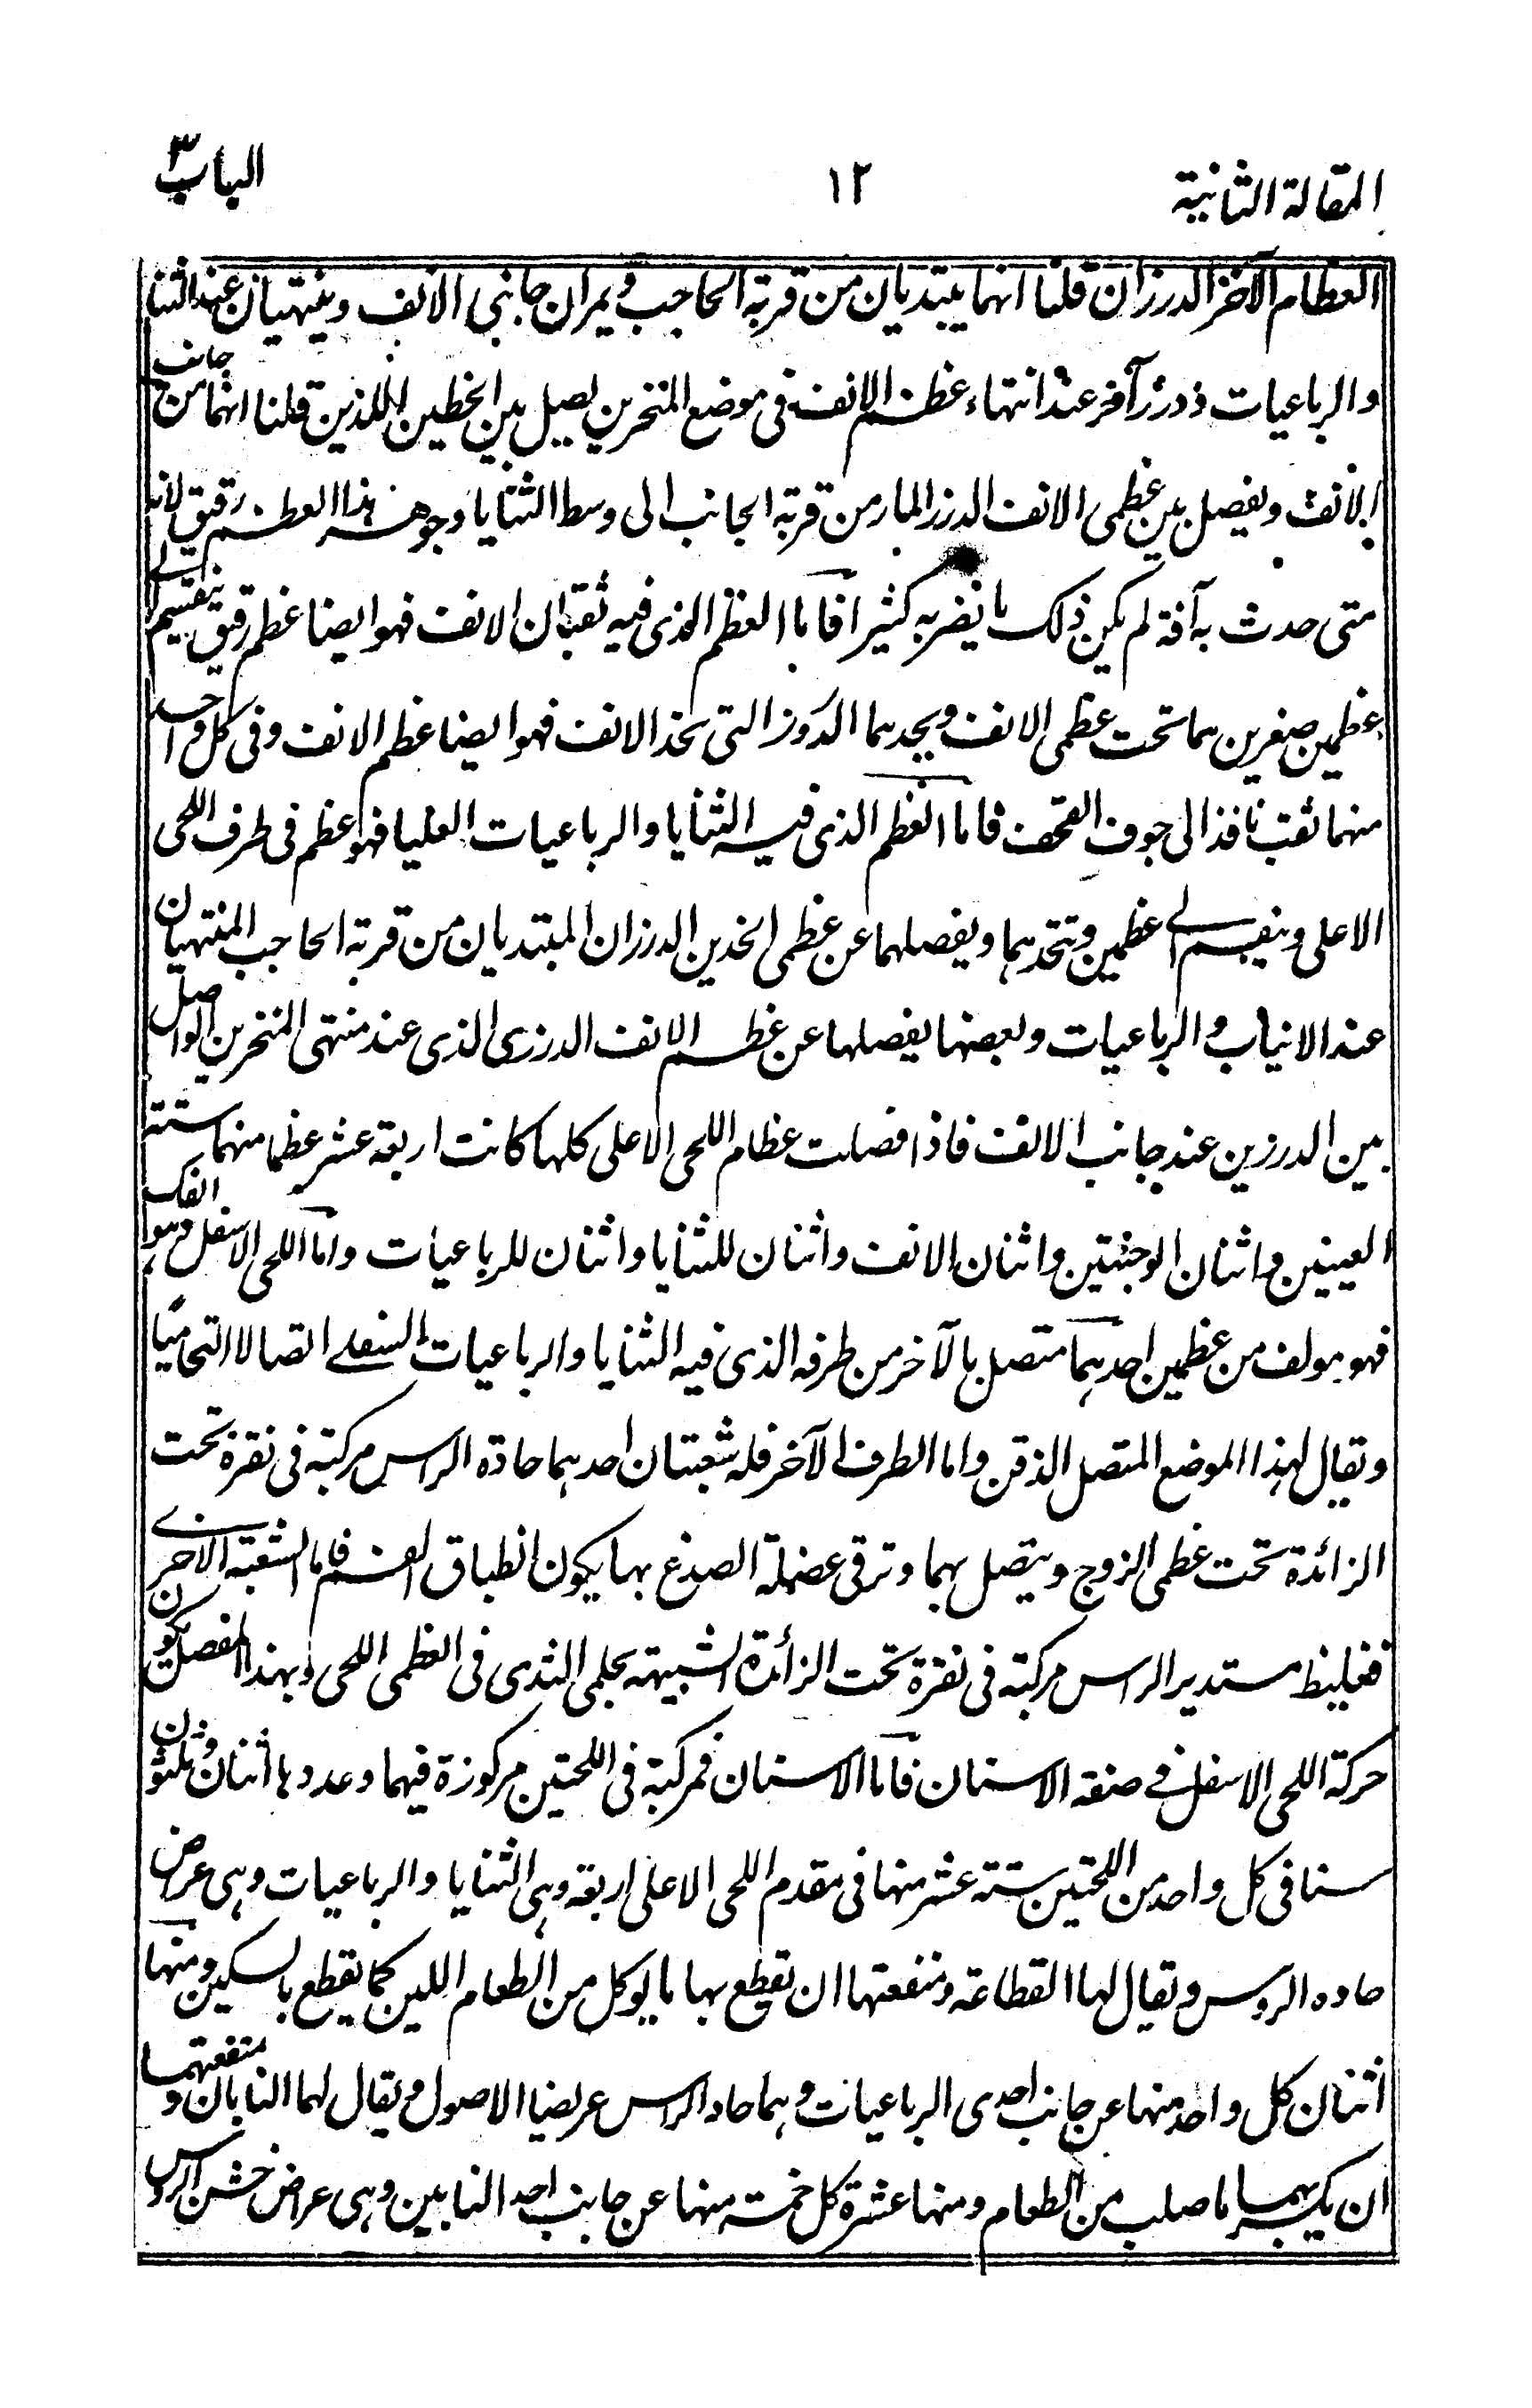 المقالة الثانية
١٢
الباب ٣
العظام الآخر الدرزان قلنا انهما يبتديان من قربة الحاجب ويمران جانبى الانف وينتهيان عند الثنايا
والرباعيات ذدرز آخر عند انتهاء عظم الانف فى موضع المنخرين يصل بين الخطين اللذين قلنا انهما من جانب
الانف ويفصل بين عظمى الانف الدرز المار من قربة الجانب الى وسط الثنايا وجوهر هذا العظم رقيق لانه
متى حدث به آفة لم يكن ذلك ما يضر به كثيرا فاما العظم الذى فيه ثقبان الانف فهو ايضا عظم رقيق ينقسم الى
عظمين صغيرين هما تحت عظمى الانف ويحدهما الدروز التى تحد الانف فهو ايضا عظم الانف وفى كل واحد
منهما ثقب نافذ الى جوف القحف فاما العظم الذى فيه الثنايا والرباعيات العليا فهو عظم فى طرف اللحى
الاعلى وينقسم الى عظمين وتحدهما ويفصلهما عن عظمى الخدين الدرزان المبتديان من قربة الحاجب المنتهيان
عند الانياب والرباعيات وبعضها يفصلها عن عظم الانف الدرزى الذى عند منتهى المنخرين الواصل
بين الدرزين عند جانب الانف فاذا فصلت عظام اللحى الاعلى كلها كانت اربعة عشر عظما منهما ستة
العينين واثنان الوجنتين واثنان الانف واثنان للثنايا واثنان للرباعيات واما اللحى الاسفل وهو الفك
فهو مولف من عظمين احدهما متصل بالآخر من طرفه الذى فيه الثنايا والرباعيات السفلى اتصالا التحاميا
ويقال لهذا الموضع المتصل الذقن واما الطرف الآخر فله شعبتان احدهما حادة الراس مركبة فى نقرة تحت
الزائدة تحت عظمى الزوج ويتصل بهما وترقى عضلة الصدغ بها يكون انطباق الفم فاما الشعبة الاخرى
فغليظ مستدير الراس مركبة فى نقرة تحت الزائدة الشبيهة بحلمى الثدى فى العظمى اللحى وبهذا المفصل يكون
حركة اللحى الاسفل فى صنفه الاسنان فاما الاسنان فمركبة فى اللحتين مركوزة فيهما وعددها اثنان وثلثون
سنا فى كل واحد من اللحتين ستة عشر منها فى مقدم اللحى الاعلى اربعة وهى الثنايا والرباعيات وهى عراض
حاده الروس ويقال لها القطاعة ومنفعتها ان تقطع بها ما يوكل من الطعام اللين كما يقطع بالسكين ومنها
اثنان كل واحد منها عن جانب احدى الرباعيات وهما حاد الراس عريضا الاصول ويقال لهما النابان ومنفعتهما
ان يكسر بهما ما صلب من الطعام ومنها عشرة كل خمسة منها عن جانب احد النابين وهى عراض خشن الروس